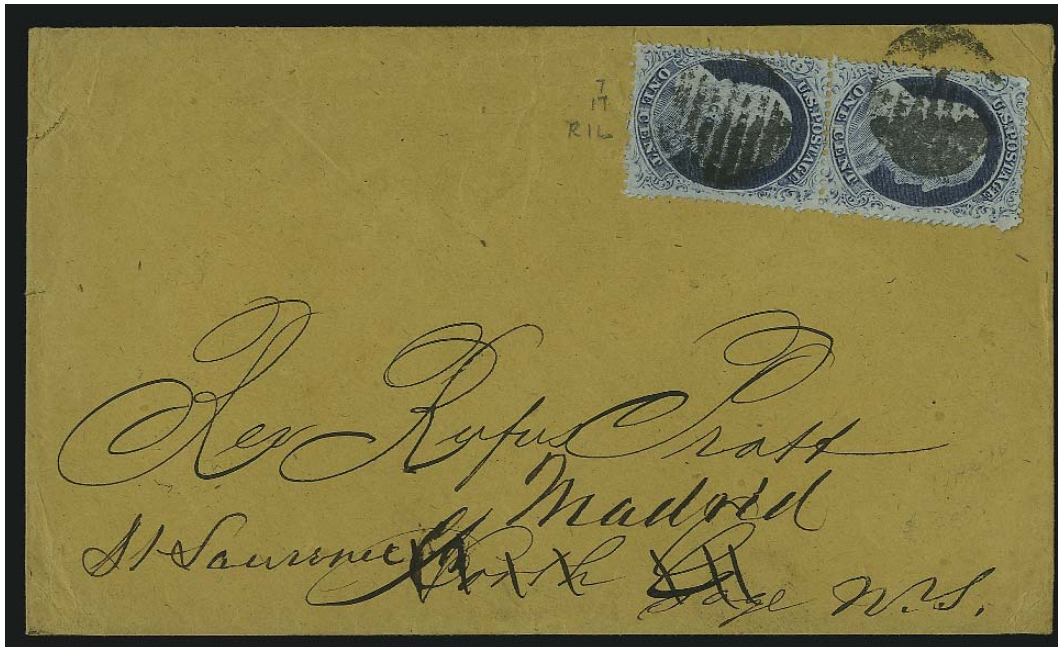 7
17
R16
U.S. POSTAGE
ONE CENT
U.S. POSTAGE
ONE CENT
Rev Rufus Pratt
Madrid
St Lawrence Co
North Gage N.Y.